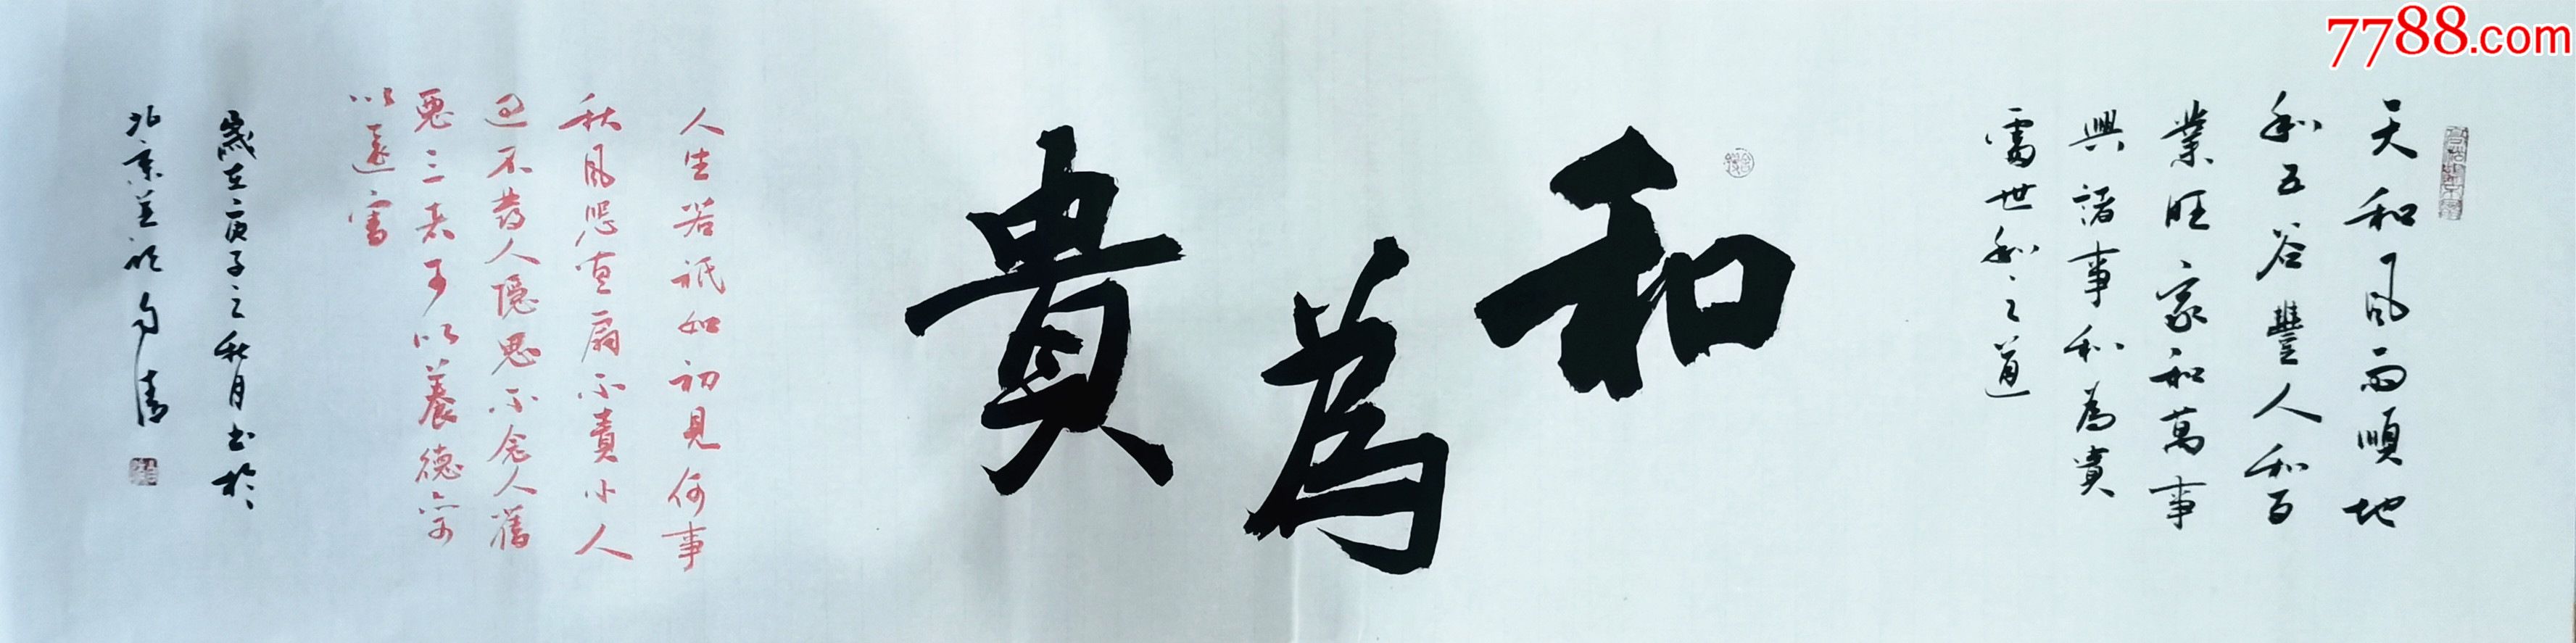 7788.com
天和风雨順地
和五谷豐人和百
業旺家和萬事
興諸事和為貴
需世和之道
和為貴
人生若祇如初見何事
秋風悲画扇不責小人
過不發人隱思不念人舊
惡三者可以養德亦可
以遠害
歲在庚子之秋月书於
北京